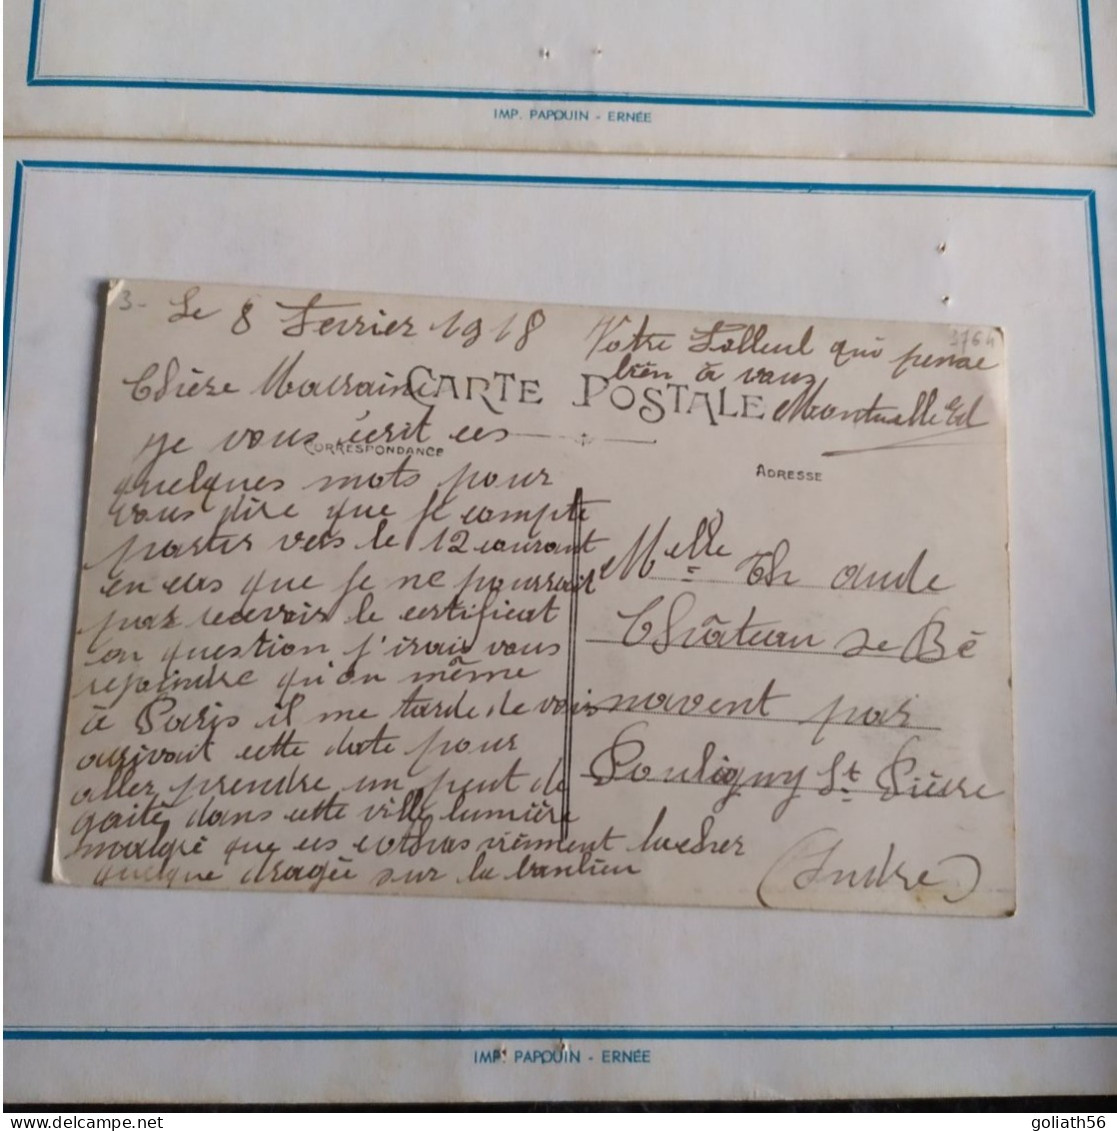 IMP. PAPOUIN - ERNÉE
3-
3764
Le 8 Fevrier 1918
Chière Marraine
je vous écrit ces
quelques mots pour
vous dire que je compte
partir vers le 12 courant
en cas que je ne pourrait
pas recevoir le certificat
en question j'irais vous
rejoindre qu'on même
à Paris il me tarde de voir
arrivait cette date pour
aller prendre un peut de
gaité dans cette ville lumière
malgré que ces cothas viennent lacher
quelque dragée sur la banlieu
Votre Filleul qui pense
bien à vous
CARTE POSTALE
CORRESPONDANCE
ADRESSE
Melle Ch aude
Château de Bé
navent par
Pouligny St Pièrre
(Indre)
IMP. PAPOUIN - ERNÉE
goliath56